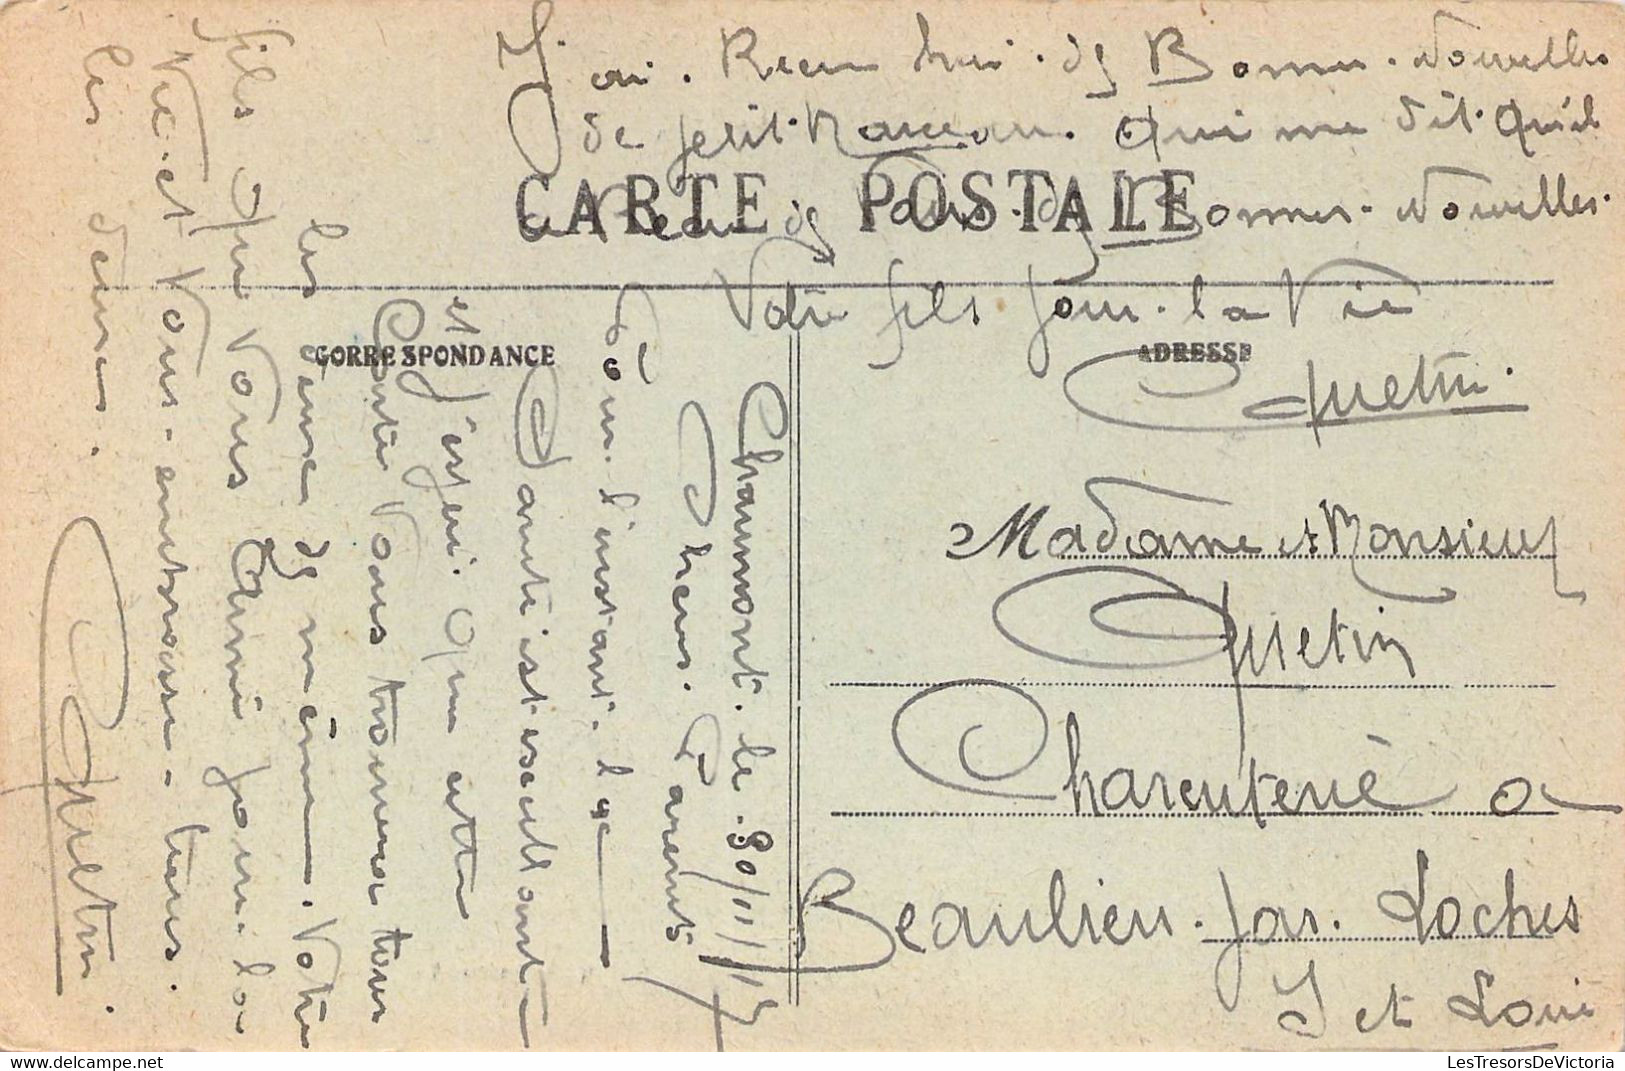 J'ai. Recu hui. de Bonnes. Nouvelles
de petit. Marceau. qui me dit. qu'il
a Recu de Vous. de Bonnes. Nouvelles.
CARTE POSTALE
Votre fils pour. la Vie
Quetin.
CORRESPONDANCE
ADRESSE
Chaumont. le. 30/11/15
Chers. Parents
Pour. l'instant. la
Santé est excellante
et j'espere. que cette
Carte Vous trouvera tous
les deux de même. Votre
fils qui Vous aime pour. la
Vie. et Vous. embrasse. tous.
les deux.
Quetin.
Madame et Monsieur
Quetin
Charcuterie a
Beaulieu. par. Loches
I et Loire
LesTresorsDeVictoria